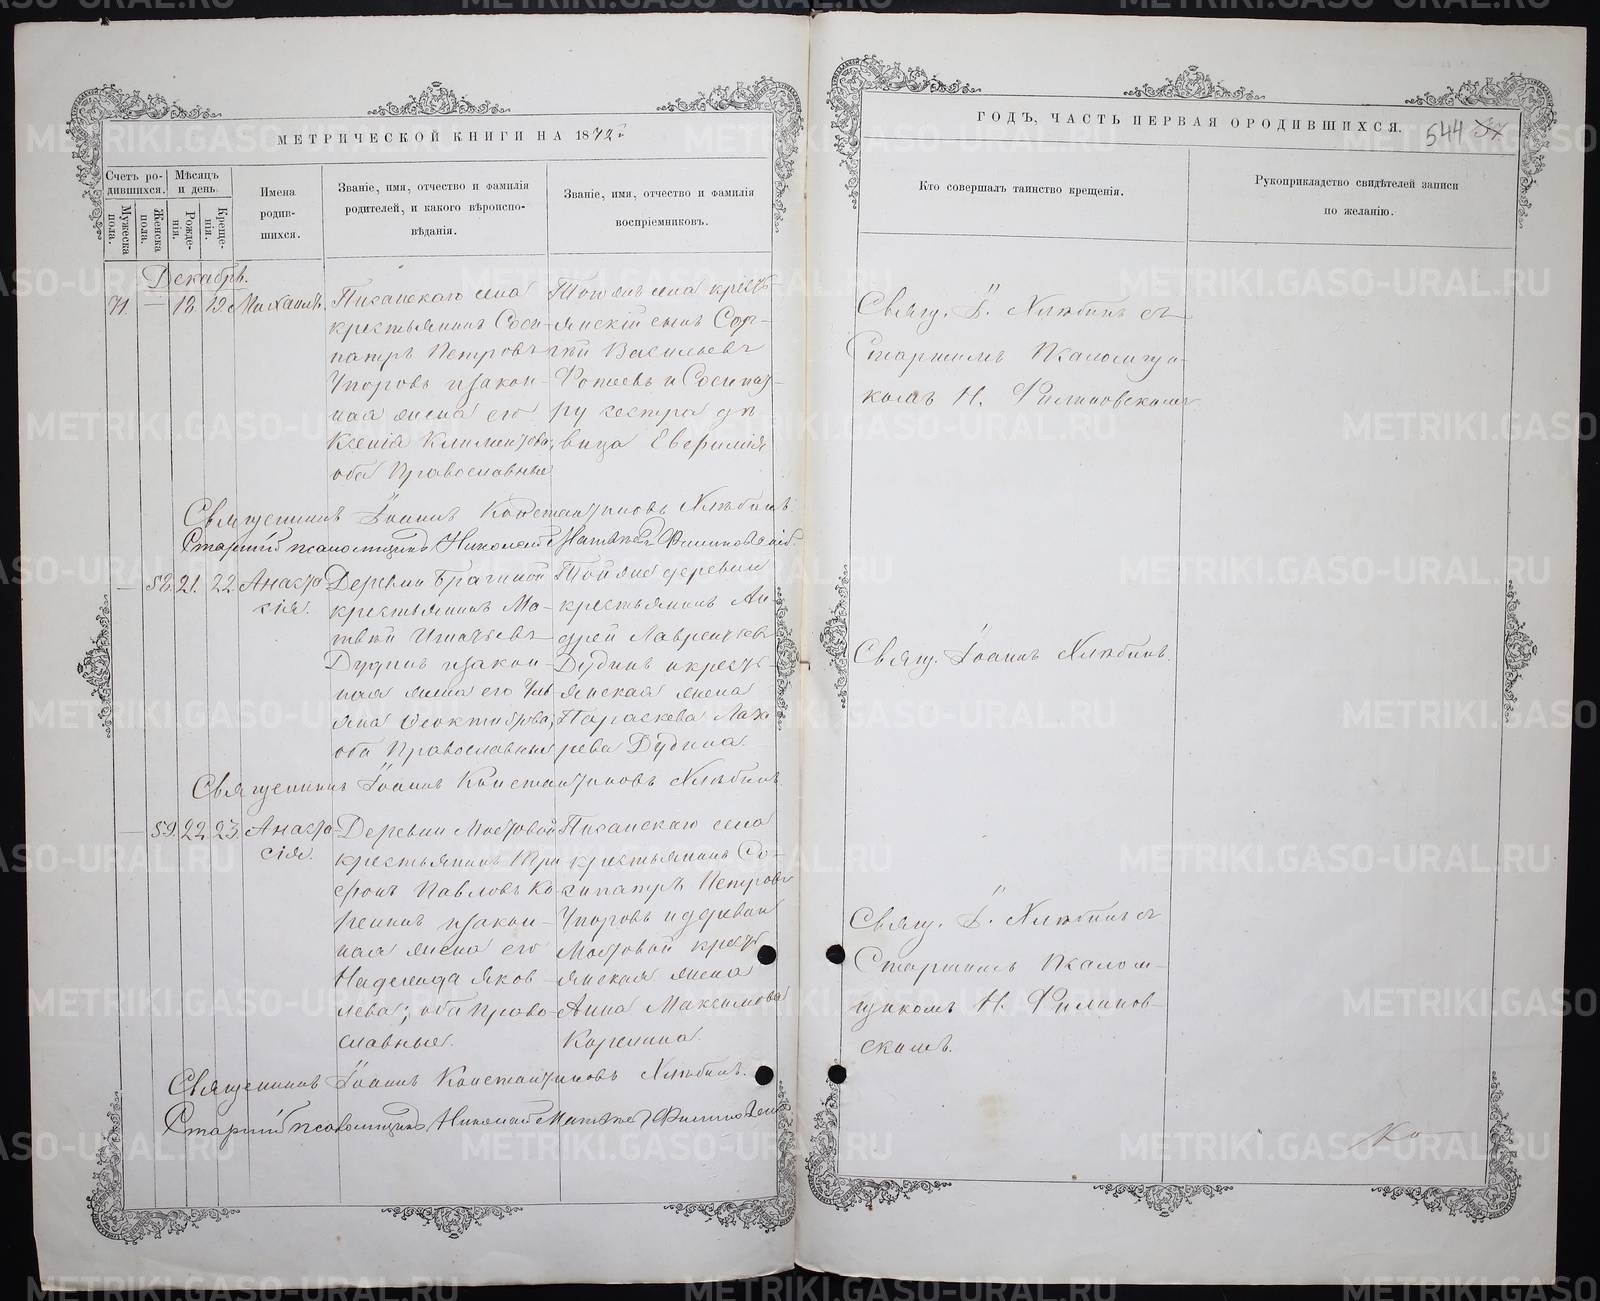 МЕТРИЧЕСКОЙ КНИГИ НА 1872
ГОДЪ, ЧАСТЬ ПЕРВАЯ ОРОДИВШИХСЯ.
544
Счетъ родившихся.
Мужеска пола.
Женска пола.
Мѣсяцъ и день.
Рожденія.
Крещенія.
Имена родившихся.
Званіе, имя, отчество и фамилія родителей, и какого вѣроисповѣданія.
Званіе, имя, отчество и фамилія воспріемниковъ.
Кто совершалъ таинство крещенія.
Рукоприкладство свидѣтелей записи по желанію.
Декабрь.
71. — 18. 19. Михаилъ.
села
крестьянинъ Соси-
патръ Петровъ
Упоровъ и закон-
ная жена его
Ксенія Климентова,
оба Православные
Тогоже села кресть-
янскій сынъ Сер-
гѣй Васильевъ
и Сосипат-
ру сестра дѣ-
вица Евфимія
Свящ. І. Хлѣбинъ съ
Старшимъ Псаломщи-
комъ Н. Филиповскимъ
Священникъ Іоаннъ Константиновъ Хлѣбинъ.
Старшій псаломщикъ Николай
— 58. 21. 22. Анаста-
сія.
Деревни Брагиной
крестьянинъ Ма-
твѣй Игнатьевъ
Дудинъ и закон-
ная жена его Уль
яна Феоктистова,
оба Православные
Тойже деревни
крестьянинъ Ан-
дрей Лаврентьевъ
Дудинъ и кресть-
янская жена
Параскева Лаза
рева Дудина.
Свящ. Іоаннъ Хлѣбинъ.
Священникъ Іоаннъ Константиновъ Хлѣбинъ
— 59. 22. 23. Анаста-
сія.
Деревни Мостовой
крестьянинъ Три
фонъ Павловъ Ко
релинъ и закон-
ная жена его
Надежда Яков-
лева; оба Право-
славные.
села
крестьянинъ Со-
сипатръ Петровъ
Упоровъ и деревни
Мостовой кресть
янская жена
Анна Максимова
Корелина.
Свящ. І. Хлѣбинъ съ
Старшимъ Псалом-
щикомъ Н. Филипов-
скимъ.
Священникъ Іоаннъ Константиновъ Хлѣбинъ.
Старшій псаломщикъ Николай
METRIKI.GASO-URAL.RU